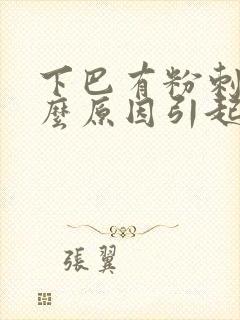 下巴有粉刺
麼原因引起
張翼